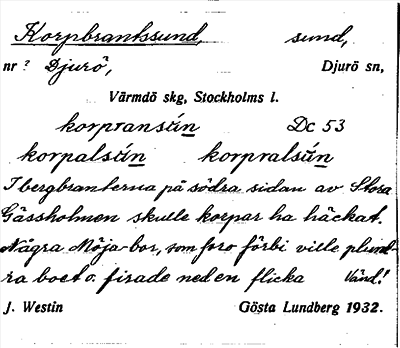 Korpbrantssund, sund,
nr? Djurö, Djurö sn,
Värmdö skg, Stockholms l.
korpransùn Dc 53
korpalsùn korpralsùn
I bergbranterna på södra sidan av Stora
Gässholmen skulle korpar ha häckat.
Några Möja-bor, som foro förbi ville plund-
ra boet o. firade ned en flicka Vänd!
J. Westin Gösta Lundberg 1932.